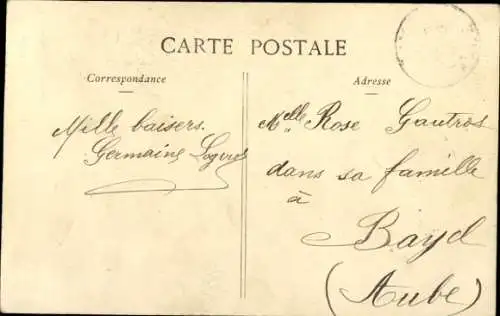 CARTE POSTALE
Correspondance
Adresse
Mille baisers.
Germaine
Melle Rose Gautros
dans sa famille
à
Bayel
(Aube)